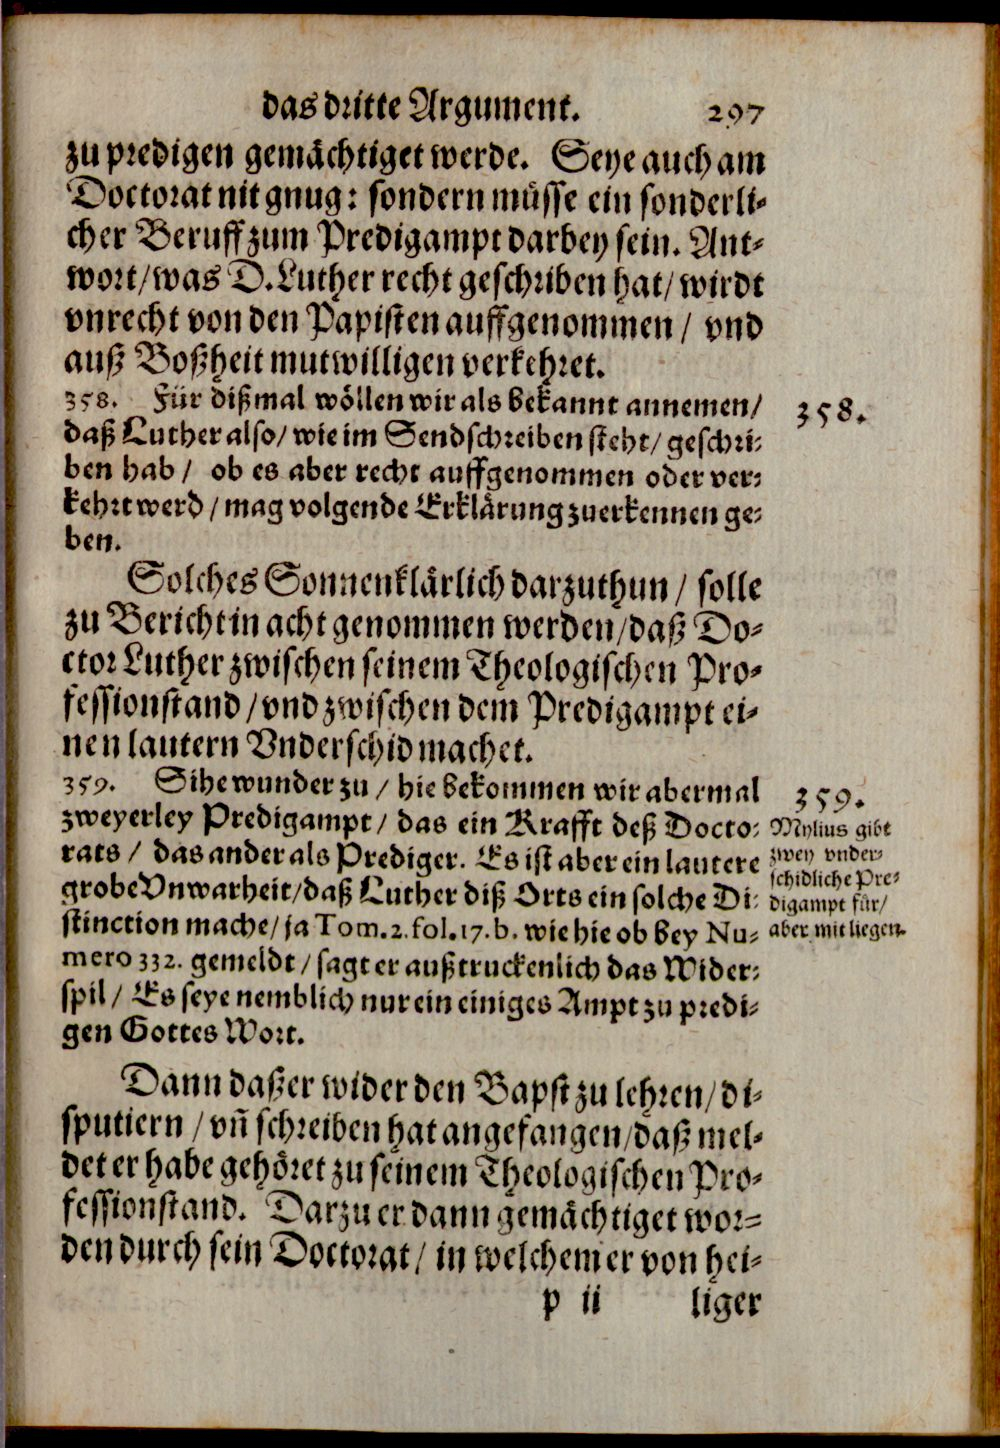 das dritte Argument. 297
zu predigen gemächtiget werde. Seye auch am
Doctorat nit gnug: sondern müsse ein sonderli-
cher Beruff zum Predigampt darbey sein. Ant-
wort/was D. Luther recht geschriben hat/ wirdt
vnrecht von den Papisten auffgenommen/ vnd
auß Boßheit mutwilligen verkehret.
358. Für dißmal wöllen wir als bekannt annemen/
daß Luther also/ wie im Sendschreiben steht/ geschri-
ben hab/ ob es aber recht auffgenommen oder ver-
kehrt werd/ mag volgende Erklärung zuerkennen ge-
ben.
358.
Solches Sonnenklärlich darzuthun/ solle
zu Bericht in acht genommen werden/daß Do-
ctor Luther zwischen seinem Theologischen Pro-
fessionstand/vnd zwischen dem Predigampt ei-
nen lautern Vnderschid machet.
359. Sihe wunder zu/ hie bekommen wir abermal
zweyerley Predigampt/ das ein Krafft deß Docto-
rats/ das ander als Prediger. Es ist aber ein lautere
grobe Vnwarheit/daß Luther diß Orts ein solche Di-
stinction mache/ ja Tom. 2. fol. 17. b. wie hie ob bey Nu-
mero 332. gemeldt/ sagt er außtruckenlich das Wider-
spil/ Es seye nemblich nur ein einiges Ampt zu predi-
gen Gottes Wort.
359.
Mylius gibt
zwey vnder-
schidliche Pre-
digampt für/
aber mit liegen.
Dann daß er wider den Bapst zu lehren/ di-
sputiern/ vñ schreiben hat angefangen/daß mel-
det er habe gehöret zu seinem Theologischen Pro-
fessionstand. Darzu er dann gemächtiget wor-
den durch sein Doctorat/ in welchem er von hei-
p ii liger